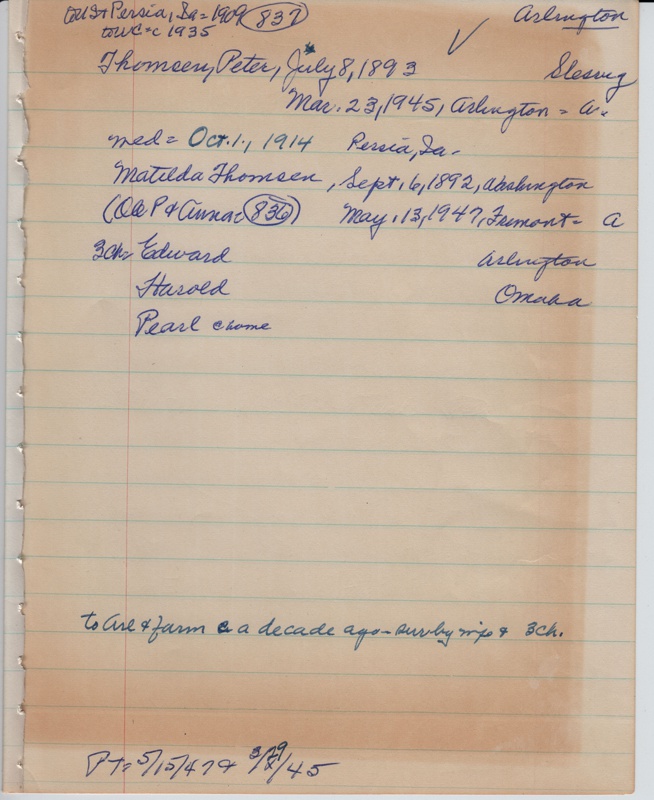 to US & Persia, Ia = 1909 837 Arlington
to WC = c 1935
Thomsen, Peter, July 8, 1893 Slesvig
Mar. 23, 1945, Arlington = A.
med = Oct. 1, 1914 Persia, Ia -
Matilda Thomsen, Sept. 6, 1892, Washington
(Da P & Anna = 836) May. 13, 1947, Fremont = A
3ch = Edward Arlington
Harold Omaha
Pearl c home
to Arl & farm c a decade ago - surv by wife & 3 ch.
PT = 5/15/47 & 3/29/45